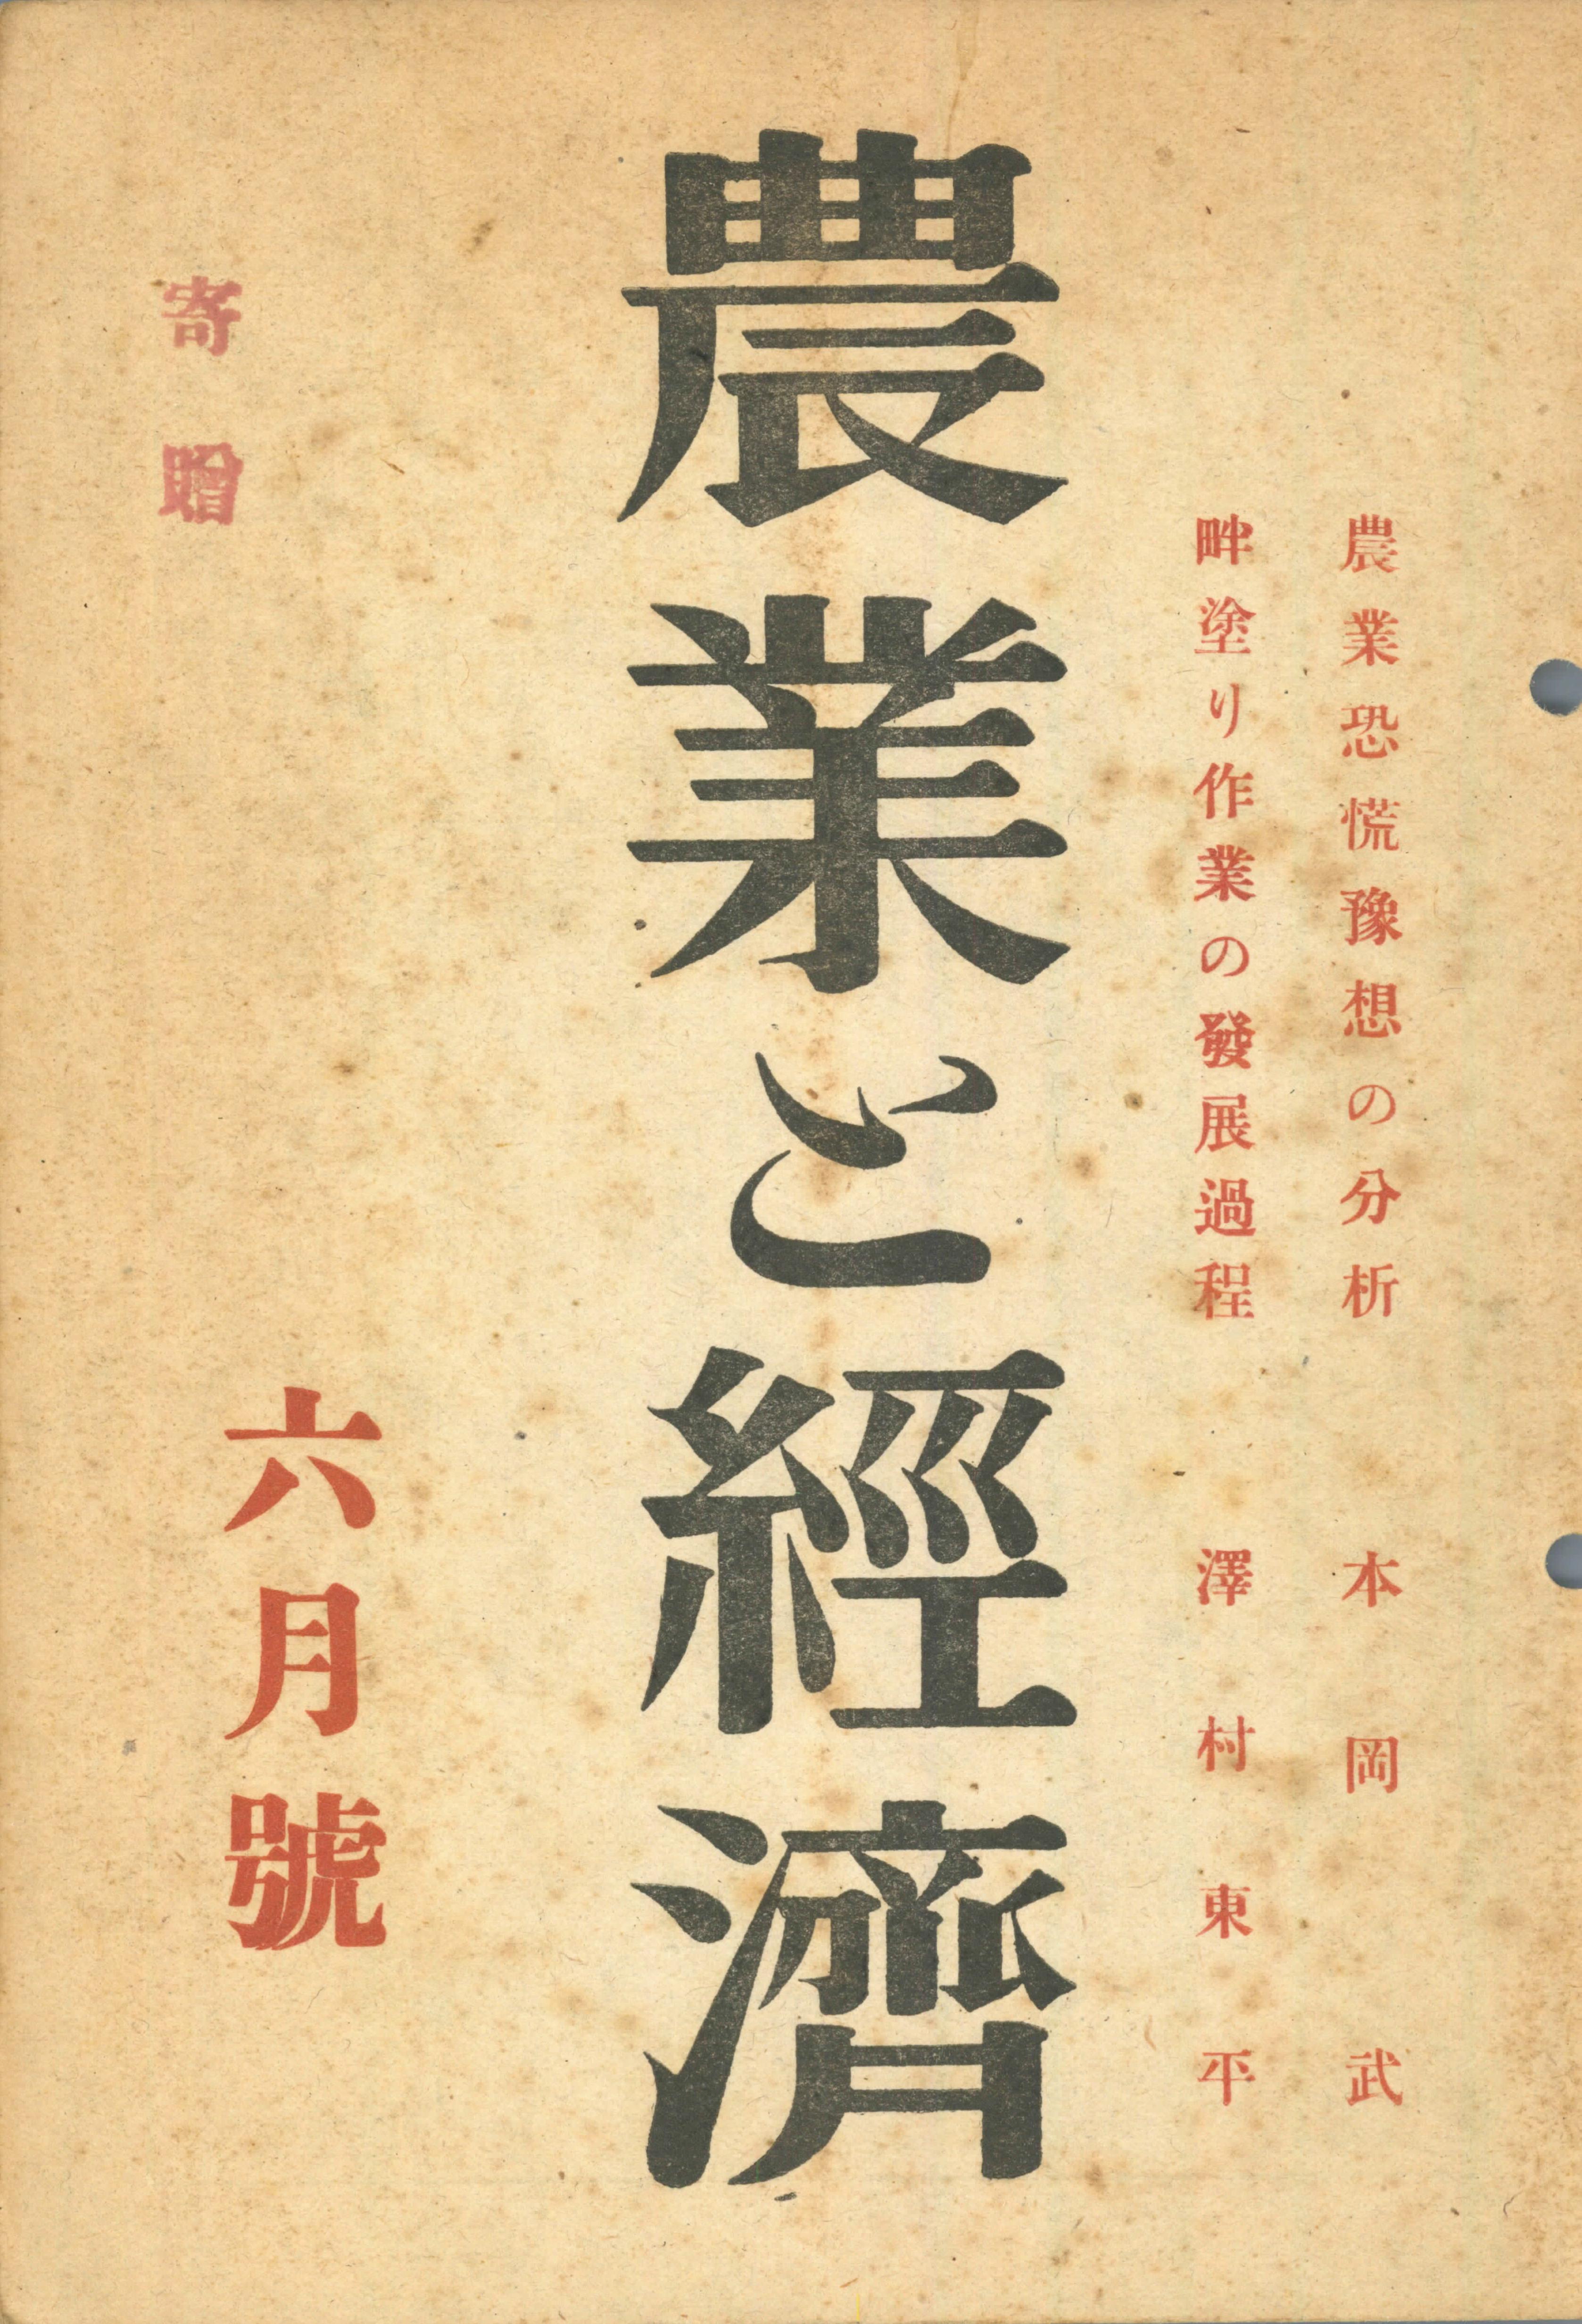 農業恐慌豫想の分析 本岡武
畔塗り作業の發展過程 澤村東平
農業と經濟
六月號
寄贈